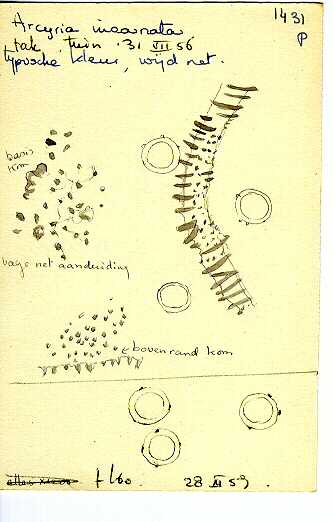 1431
P
Arcyria incarnata
tak, tuin. 31 VII 56
typische kleur, wijd net.
basis
kom
vage net aanduiding
bovenrand kom
28 XI 59.